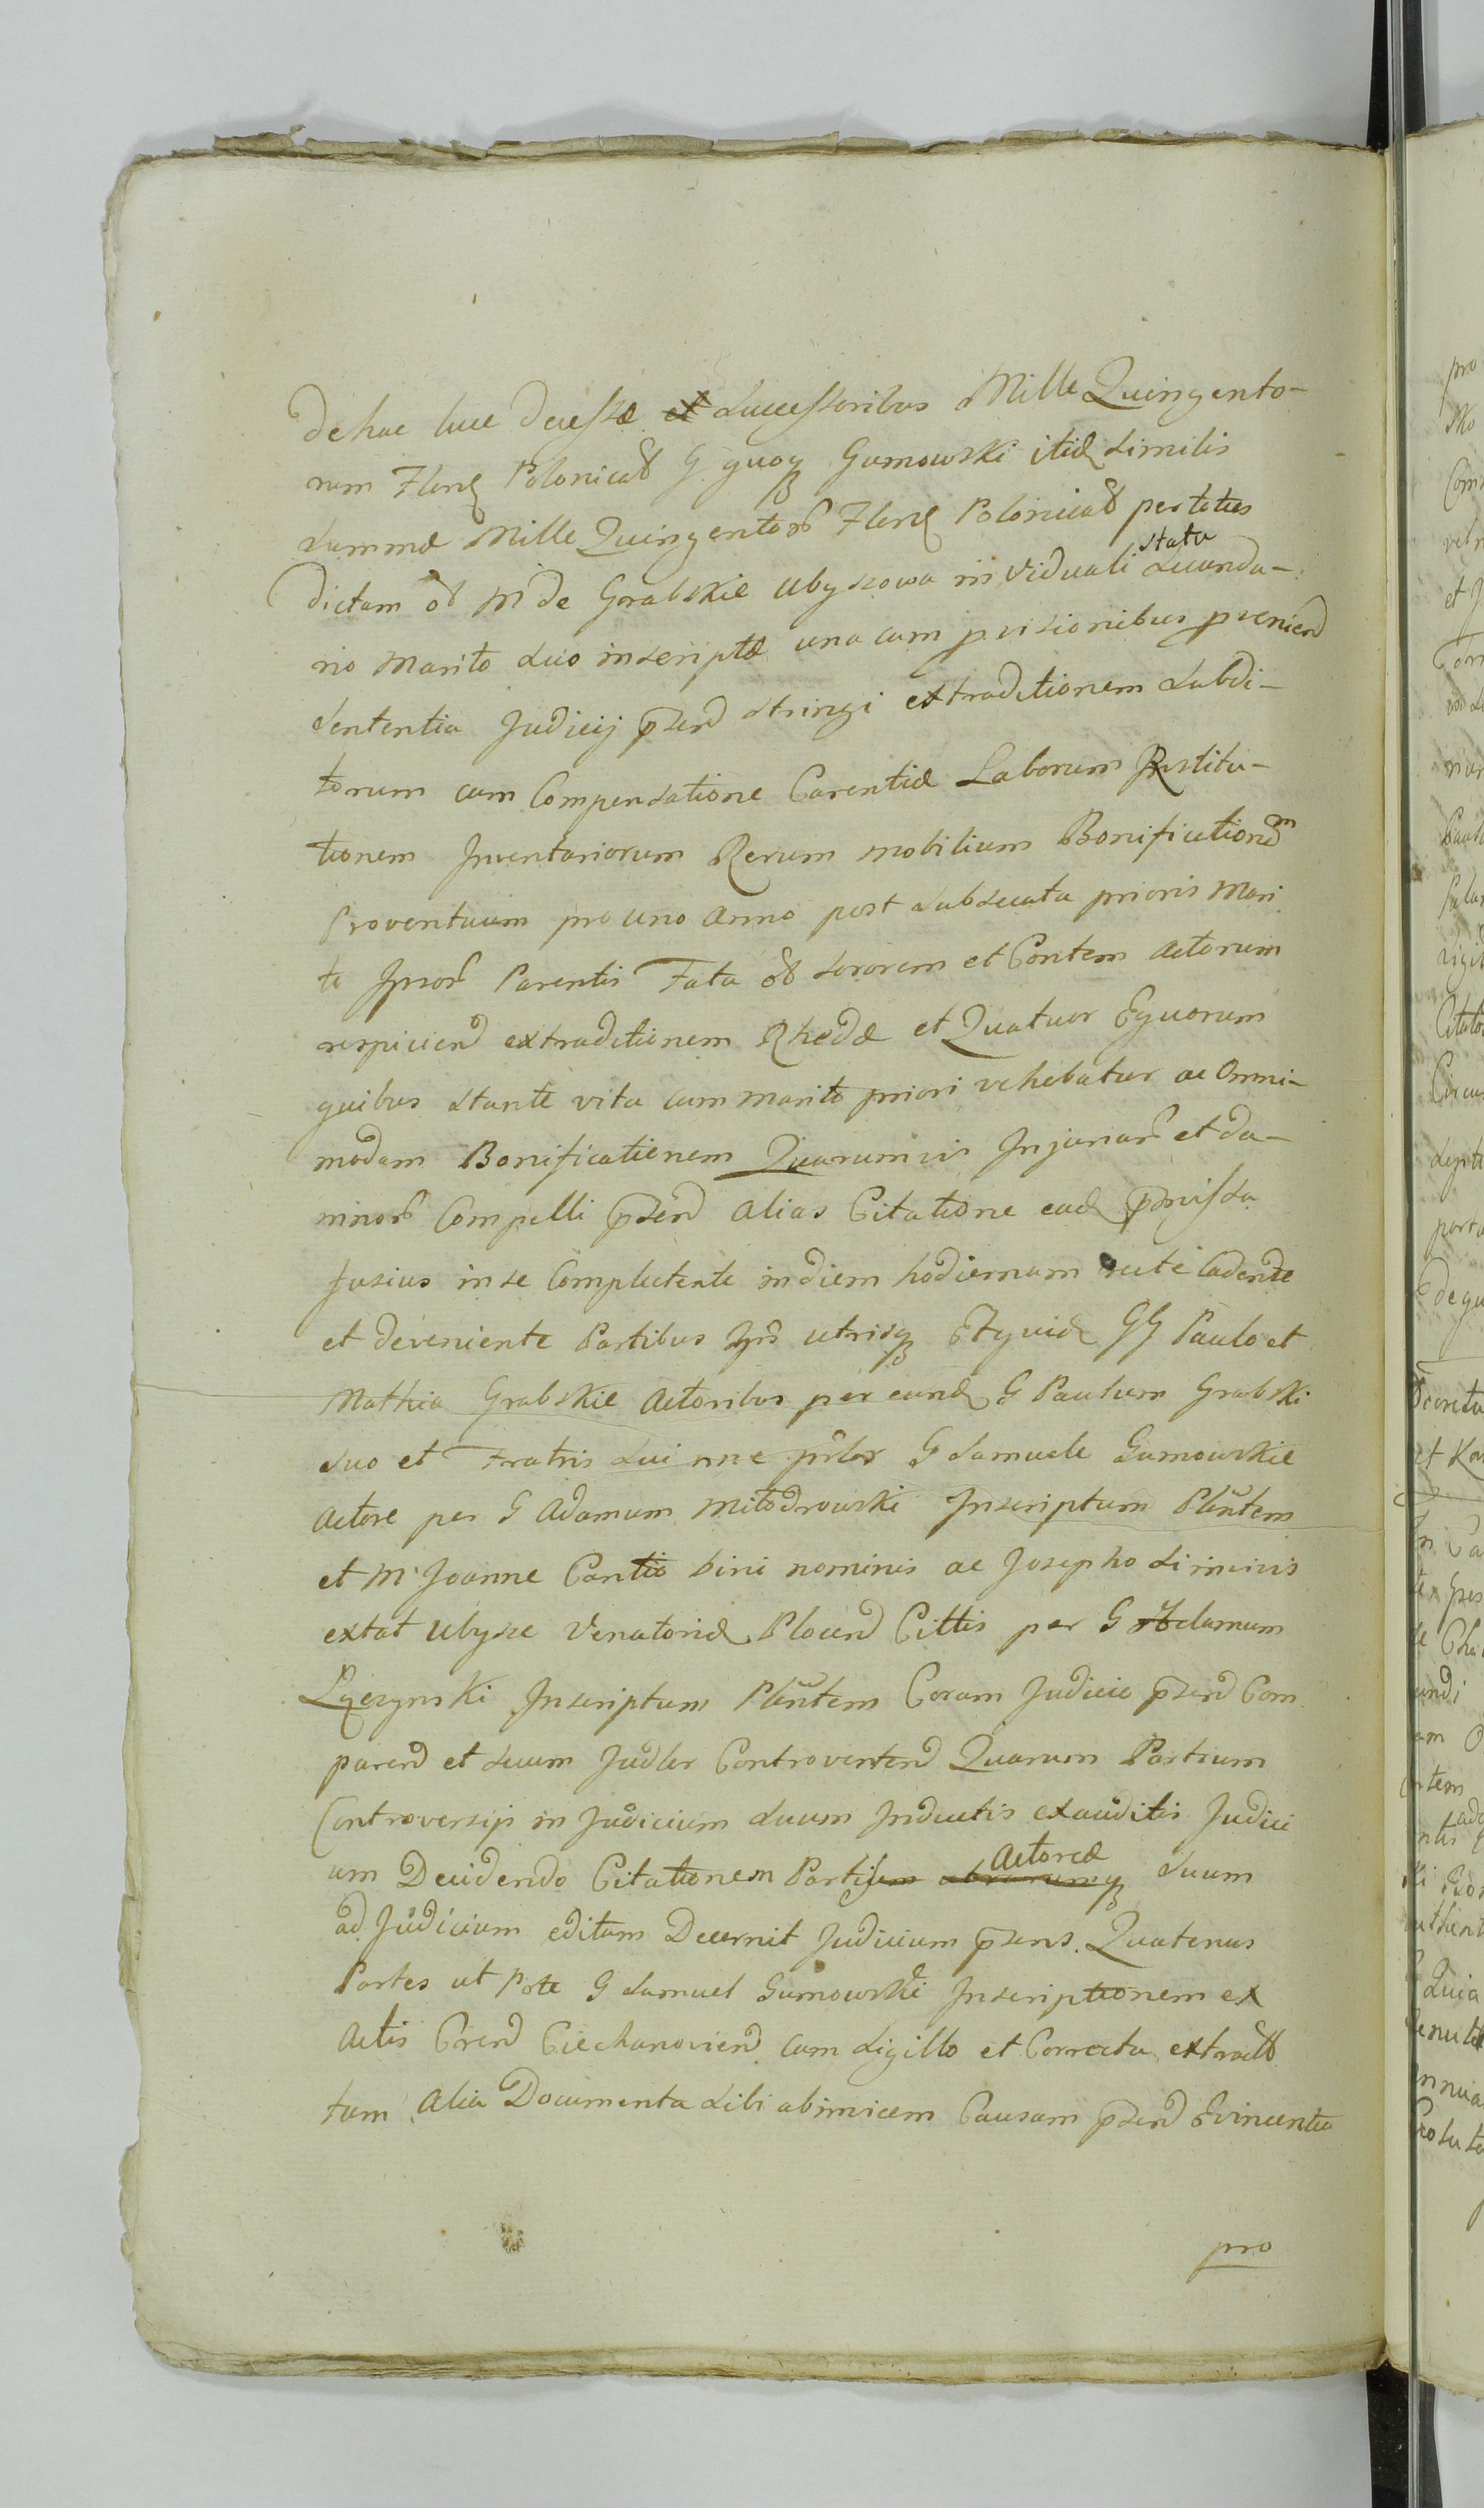 de hac luce decessæ et Successoribus Mille Quingento-
rum Floren Polonical G. quoq Gumowski itid Similis
Summæ Mille Quingentor Floren Polonical per toties
dictam ol M de Grabskie Ubyszowa in Viduali statu Secunda-
rio Marito Suo inscriptæ una cum provisionibus provenien
Sententia Judicij præsen stringi extraditionem Subdi-
torum cum Compensatione Carentiæ Laborum Restitu-
tionem Inventariorum Rerum mobilium Bonificationem
Proventuum pro uno Anno post Subsecuta prioris Mari
to Ipsor Parentis Fata ol Sororem et Contem Actorum
respicien extraditionem Rhedæ et Quatuor Equorum
quibus stante vita cum marito priori vehebatur ac Omni-
modam Bonificationem Quarumvis Injuriar et da-
mnor Compelli præsen alias Citatione ead præmissa
fusius in se Complectente in diem hodiernam recte Cadente
et deveniente Partibus Ipsis utrisq Et quid GG Paulo et
Mathia Grabskie Actoribus per eund G Paulum Grabski
Suo et Fratris Sui nne prler G Samuele Gumowskie
Actore per G Adamum Mitodrowski Inscriptum Plentem
et M Joanne Cantio bini nominis ac Josepho Siminis
extat Ubysze Venatorid Plocen Cittis per G Adamum
Łęczynski Inscriptum Plentem Coram Judicio præsen Com
paren et Secum Judler Controverten Quarum Partium
Controversijs in Judicium Suum Inductis exauditis Judici
um Decidendo Citationem Partium utrarumq Actoreæ Suum
ad Judicium editam Decernit Judicium præsens. Quatenus
Partes ut pote G Samuel Gumowski Inscriptionem ex
Actis Cren Ciechanovien cum Sigillo et Correcta extract
tam Alia Documenta Sibi abinvicem Causam præsen Evincentia
pro